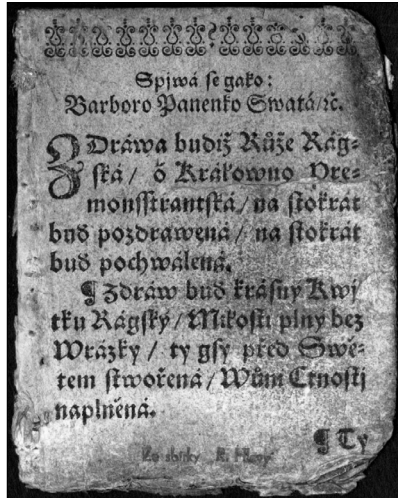 Spjwá se gako:
Barboro Panenko Swatá/ꝛč.
ZDráwa budiž Růže Rág-
ská/ ó Králowno Pre-
monsstrantská/ na stokrát
buď pozdrawená/ na stokrát
buď pochwálená.
¶ Zdráw buď krásny Kwj
tku Rágský/ Milosti plný bez
Wrázky/ ty gsy před Swě-
tem stwořená/ Wům Ctnostj
naplněná.
¶ Ty
Ze sbírky